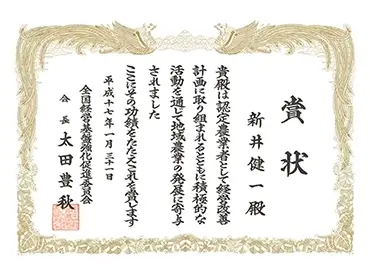 賞状
新井健一殿
貴殿は認定農業者として経営改善
計画に取り組まれるとともに積極的な
活動を通して地域農業の発展に寄与
されました
ここにその功績をたたえこれを賞します
平成十七年一月三十一日
全国経営基盤強化促進委員会
会長 太田豊秋